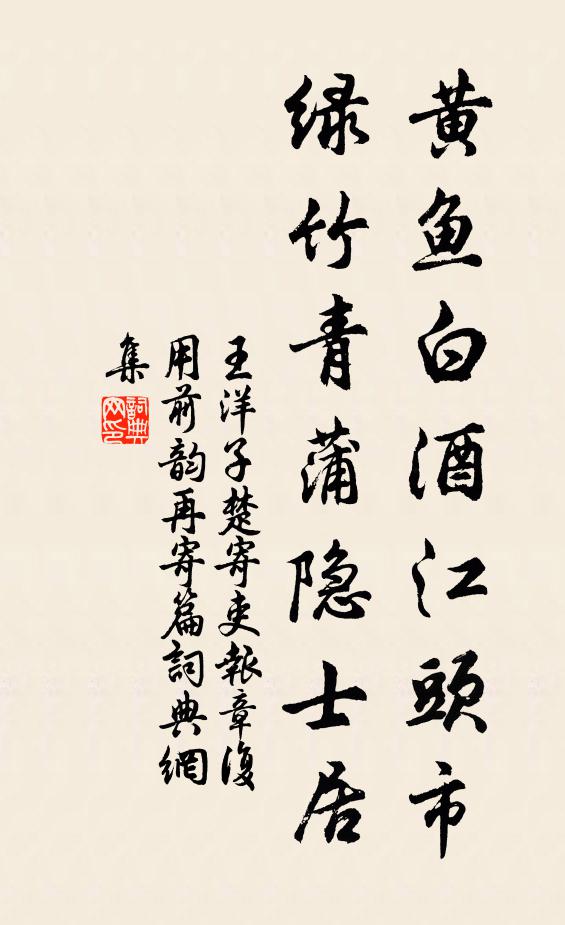 黄鱼白酒江頭市
绿竹青蒲隐士居
王洋子楚寄吏報章復
用前韵再寄篇詞典網
集
詞典
网印